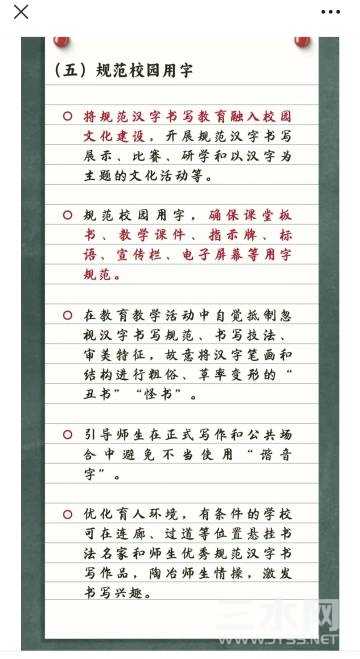 （五）规范校园用字
将规范汉字书写教育融入校园
文化建设，开展规范汉字书写
展示、比赛、研学和以汉字为
主题的文化活动等。
规范校园用字，确保课堂板
书、教学课件、指示牌、标
语、宣传栏、电子屏幕等用字
规范。
在教育教学活动中自觉抵制忽
视汉字书写规范、书写技法、
审美特征，故意将汉字笔画和
结构进行粗俗、草率变形的“
丑书”“怪书”。
引导师生在正式写作和公共场
合中避免不当使用“谐音
字”。
优化育人环境，有条件的学校
可在连廊、过道等位置悬挂书
法名家和师生优秀规范汉字书
写作品，陶冶师生情操，激发
书写兴趣。
三水网
WWW.JTSS.NET